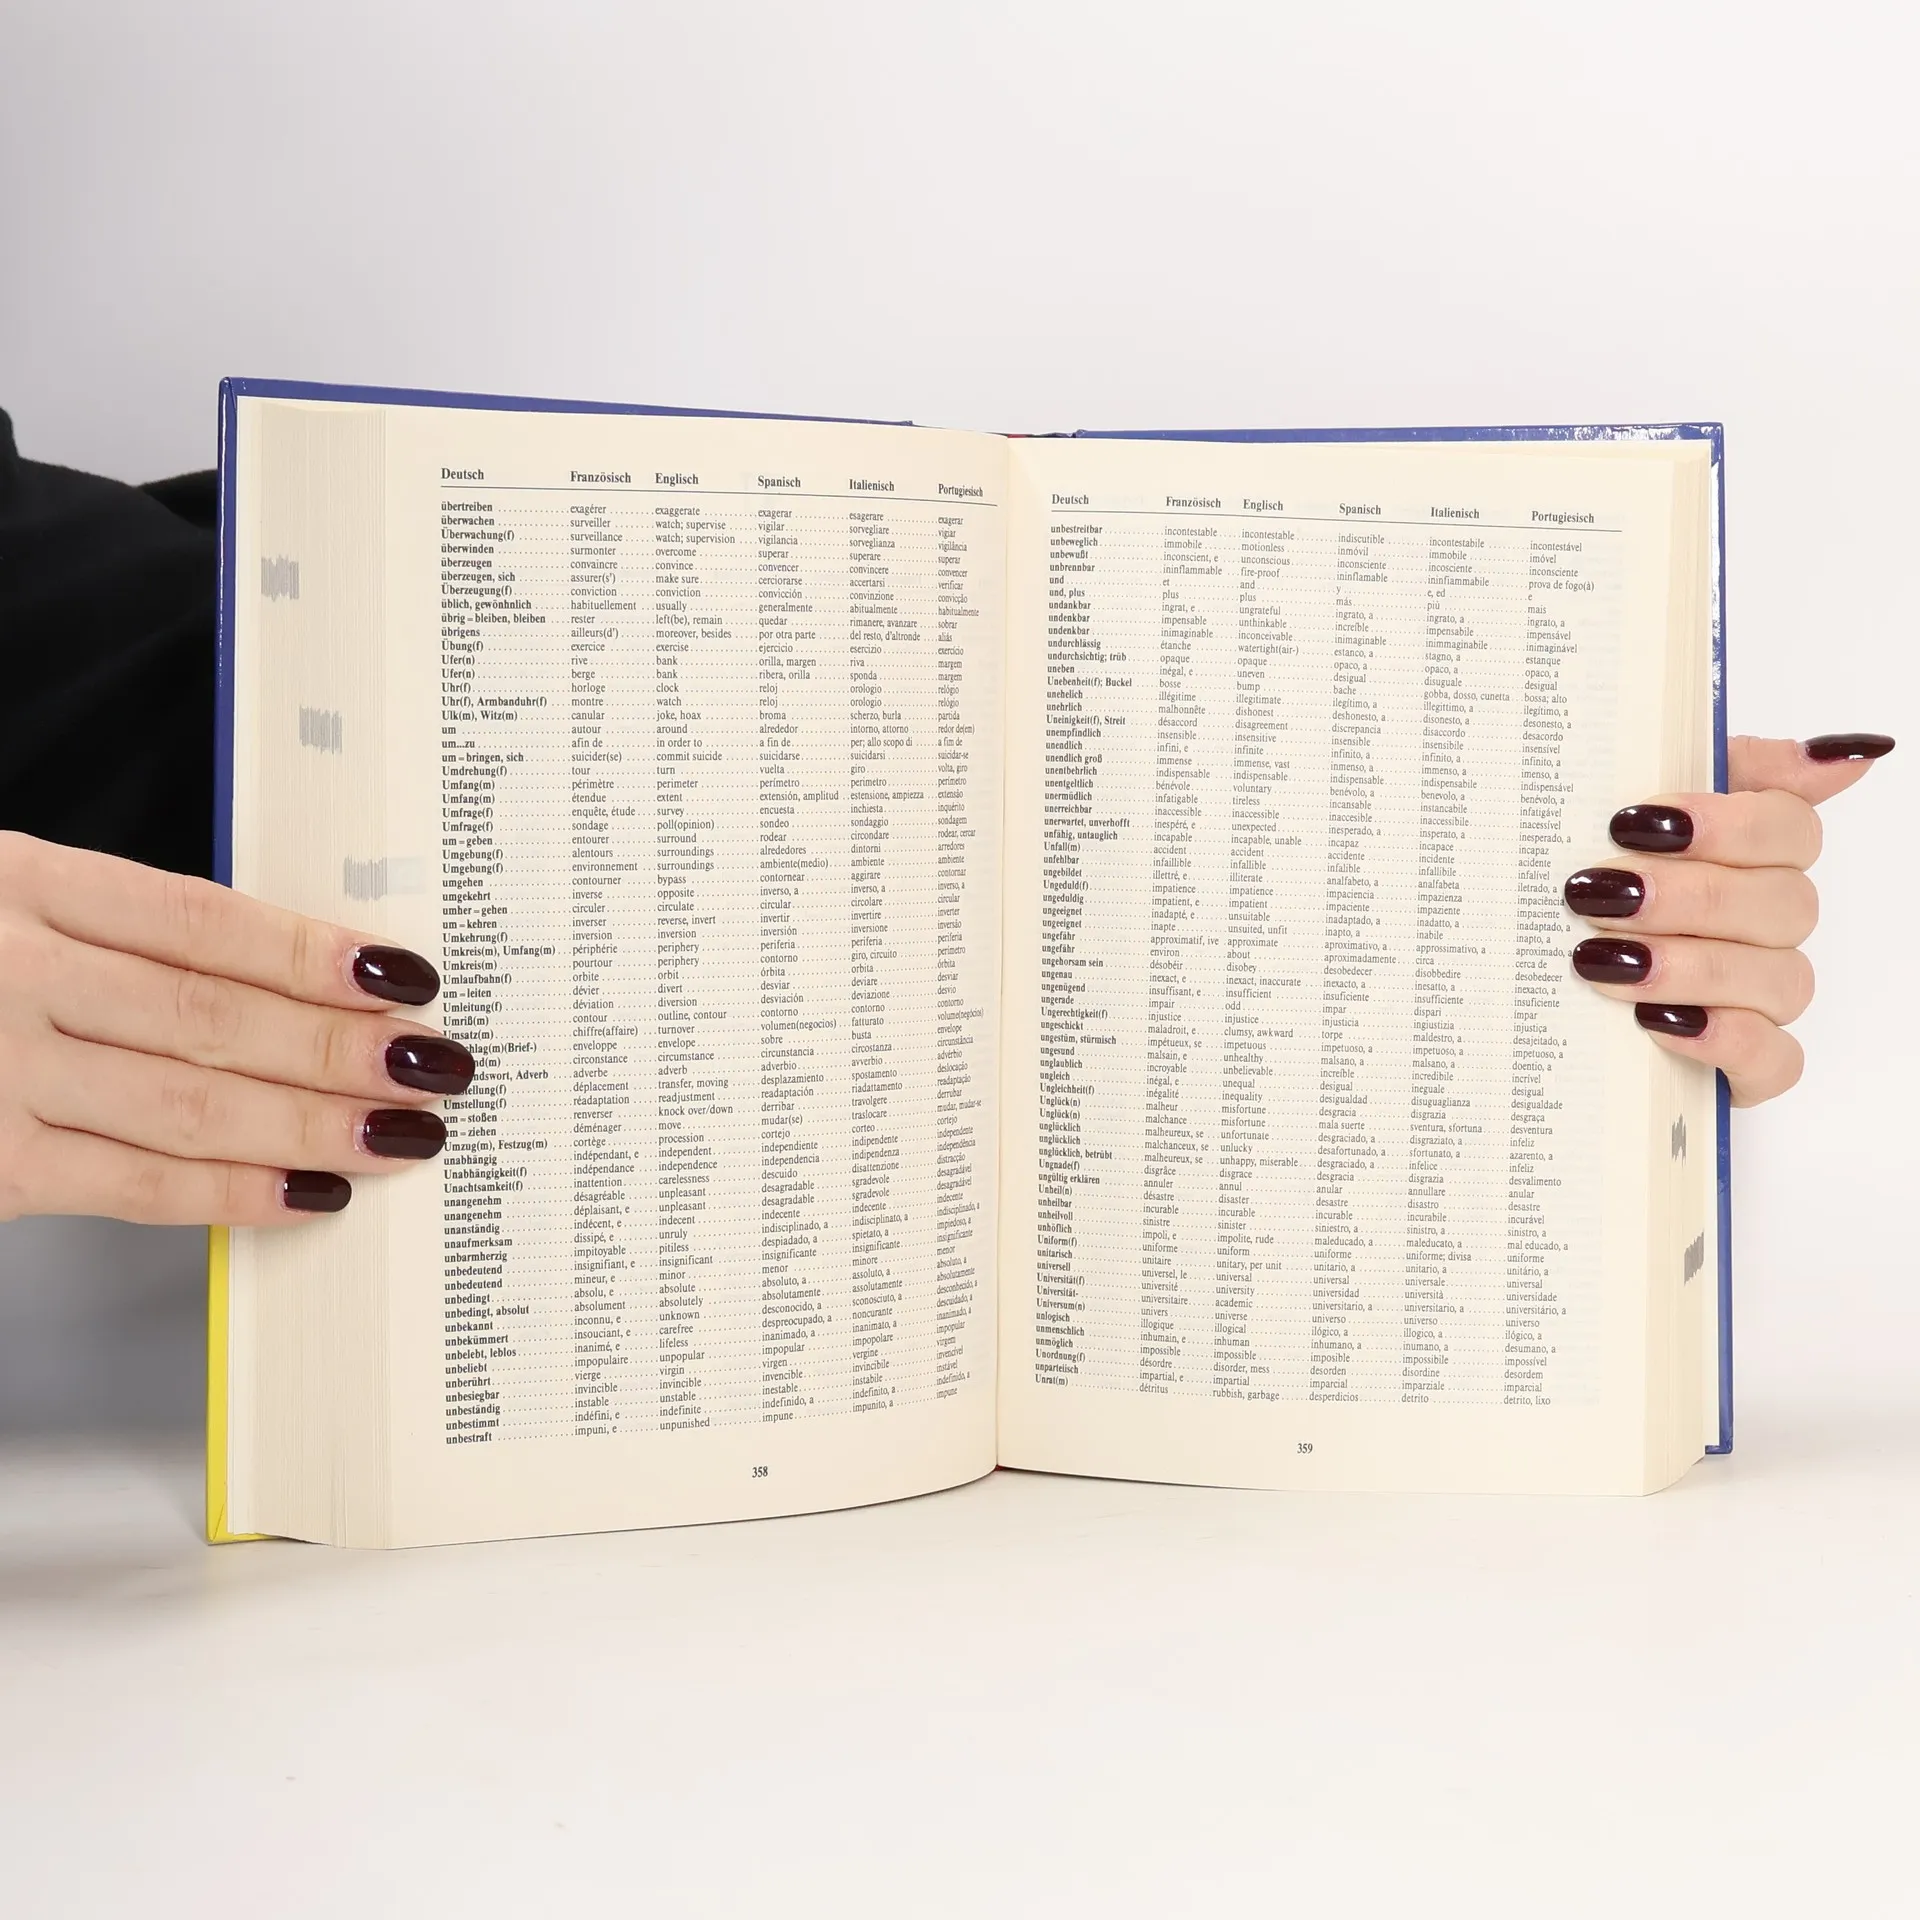 Deutsch Französisch Englisch Spanisch Italienisch Portugiesisch
übertreiben exagérer exaggerate exagerar esagerare exagerar
überwachen surveiller watch; supervise vigilar sorvegliare vigiar
Überwachung(f) surveillance watch; supervision vigilancia sorveglianza vigilância
überwinden surmonter overcome superar superare superar
überzeugen convaincre convince convencer convincere convencer
überzeugen, sich assurer(s') make sure cerciorarse accertarsi verificar
Überzeugung(f) conviction conviction convicción convinzione convicção
üblich, gewöhnlich habituellement usually generalmente abitualmente habitualmente
übrig=bleiben, bleiben rester left(be), remain quedar rimanere, avanzare sobrar
übrigens ailleurs(d') moreover, besides por otra parte del resto, d'altronde aliás
Übung(f) exercice exercise ejercicio esercizio exercício
Ufer(n) rive bank orilla, margen riva margem
Ufer(n) berge bank ribera, orilla sponda margem
Uhr(f) horloge clock reloj orologio relógio
Uhr(f), Armbanduhr(f) montre watch reloj orologio relógio
Ulk(m), Witz(m) canular joke, hoax broma scherzo, burla partida
um autour around alrededor intorno, attorno redor de(em)
um...zu afin de in order to a fin de per; allo scopo di a fim de
um=bringen, sich suicider(se) commit suicide suicidarse suicidarsi suicidar-se
Umdrehung(f) tour turn vuelta giro volta, giro
Umfang(m) périmètre perimeter perímetro perimetro perímetro
Umfang(m) étendue extent extensión, amplitud estensione, ampiezza extensão
Umfrage(f) enquête, étude survey encuesta inchiesta inquérito
Umfrage(f) sondage poll(opinion) sondeo sondaggio sondagem
um=geben entourer surround rodear circondare rodear, cercar
Umgebung(f) alentours surroundings alrededores dintorni arredores
Umgebung(f) environnement surroundings ambiente(medio) ambiente ambiente
umgehen contourner bypass contornear aggirare contornar
umgekehrt inverse opposite inverso, a inverso, a inverso, a
umher=gehen circuler circulate circular circolare circular
um=kehren inverser reverse, invert invertir invertire inverter
Umkehrung(f) inversion inversion inversión inversione inversão
Umkreis(m), Umfang(m) périphérie periphery periferia periferia periferia
Umkreis(m) pourtour periphery contorno giro, circuito perímetro
Umlaufbahn(f) orbite orbit órbita orbita órbita
um=leiten dévier divert desviar deviare desviar
Umleitung(f) déviation diversion desviación deviazione desvio
Umriß(m) contour outline, contour contorno contorno contorno
Umsatz(m) chiffre(affaire) turnover volumen(negocios) fatturato volume(negócios)
schlag(m)(Brief-) enveloppe envelope sobre busta envelope
nd(m) circonstance circumstance circunstancia circostanza circunstância
ndswort, Adverb adverbe adverb adverbio avverbio advérbio
stellung(f) déplacement transfer, moving desplazamiento spostamento deslocação
Umstellung(f) réadaptation readjustment readaptación riadattamento readaptação
um=stoßen renverser knock over/down derribar travolgere derrubar
um=ziehen déménager move mudar(se) traslocare mudar, mudar-se
Umzug(m), Festzug(m) cortège procession cortejo corteo cortejo
unabhängig indépendant, e independent independiente indipendente independente
Unabhängigkeit(f) indépendance independence independencia indipendenza independência
Unachtsamkeit(f) inattention carelessness descuido disattenzione distracção
unangenehm désagréable unpleasant desagradable sgradevole desagradável
unangenehm déplaisant, e unpleasant desagradable sgradevole desagradável
unanständig indécent, e indecent indecente indecente indecente
unaufmerksam dissipé, e unruly indisciplinado, a indisciplinato, a indisciplinado, a
unbarmherzig impitoyable pitiless despiadado, a spietato, a impiedoso, a
unbedeutend insignifiant, e insignificant insignificante insignificante insignificante
unbedeutend mineur, e minor menor minore menor
unbedingt absolu, e absolute absoluto, a assoluto, a absoluto, a
unbedingt, absolut absolument absolutely absolutamente assolutamente absolutamente
unbekannt inconnu, e unknown desconocido, a sconosciuto, a desconhecido, a
unbekümmert insouciant, e carefree despreocupado, a noncurante descuidado, a
unbelebt, leblos inanimé, e lifeless inanimado, a inanimato, a inanimado, a
unbeliebt impopulaire unpopular impopular impopolare impopular
unberührt vierge virgin virgen vergine virgem
unbesiegbar invincible invincible invencible invincibile invencível
unbeständig instable unstable inestable instabile instável
unbestimmt indéfini, e indefinite indefinido, a indefinito, a indefinido, a
unbestraft impuni, e unpunished impune impunito, a impune
358
Deutsch Französisch Englisch Spanisch Italienisch Portugiesisch
unbestreitbar incontestable incontestable indiscutible incontestabile incontestável
unbeweglich immobile motionless inmóvil immobile imóvel
unbewußt inconscient, e unconscious inconsciente incosciente inconsciente
unbrennbar ininflammable fire-proof ininflamable ininfiammabile prova de fogo(à)
und et and y e, ed e
und, plus plus plus más più mais
undankbar ingrat, e ungrateful ingrato, a ingrato, a ingrato, a
undenkbar impensable unthinkable increíble impensabile impensável
undenkbar inimaginable inconceivable inimaginable inimmaginabile inimaginável
undurchlässig étanche watertight(air-) estanco, a stagno, a estanque
undurchsichtig; trüb opaque opaque opaco, a opaco, a opaco, a
uneben inégal, e uneven desigual disuguale desigual
Unebenheit(f); Buckel bosse bump bache gobba, dosso, cunetta bossa; alto
unehelich illégitime illegitimate ilegítimo, a illegittimo, a ilegítimo, a
unehrlich malhonnête dishonest deshonesto, a disonesto, a desonesto, a
Uneinigkeit(f), Streit désaccord disagreement discrepancia disaccordo desacordo
unempfindlich insensible insensitive insensible insensibile insensível
unendlich infini, e infinite infinito, a infinito, a infinito, a
unendlich groß immense immense, vast inmenso, a immenso, a imenso, a
unentbehrlich indispensable indispensable indispensable indispensabile indispensável
unentgeltlich bénévole voluntary benévolo, a benevolo, a benévolo, a
unermüdlich infatigable tireless incansable instancabile infatigável
unerreichbar inaccessible inaccessible inaccesible inaccessibile inacessível
unerwartet, unverhofft inespéré, e unexpected inesperado, a insperato, a inesperado, a
unfähig, untauglich incapable incapable, unable incapaz incapace incapaz
Unfall(m) accident accident accidente incidente acidente
unfehlbar infaillible infallible infalible infallibile infalível
ungebildet illettré, e illiterate analfabeto, a analfabeta iletrado, a
Ungeduld(f) impatience impatience impaciencia impazienza impaciência
ungeduldig impatient, e impatient impaciente impaziente impaciente
ungeeignet inadapté, e unsuitable inadaptado, a inadatto, a inadaptado, a
ungeeignet inapte unsuited, unfit inapto, a inabile inapto, a
ungefähr approximatif, ive approximate aproximativo, a approssimativo, a aproximado, a
ungefähr environ about aproximadamente circa cerca de
ungehorsam sein désobéir disobey desobedecer disobbedire desobedecer
ungenau inexact, e inexact, inaccurate inexacto, a inesatto, a inexacto, a
ungenügend insuffisant, e insufficient insuficiente insufficiente insuficiente
ungerade impair odd impar dispari ímpar
Ungerechtigkeit(f) injustice injustice injusticia ingiustizia injustiça
ungeschickt maladroit, e clumsy, awkward torpe maldestro, a desajeitado, a
ungestüm, stürmisch impétueux, se impetuous impetuoso, a impetuoso, a impetuoso, a
ungesund malsain, e unhealthy malsano, a malsano, a doentio, a
unglaublich incroyable unbelievable increíble incredibile incrível
ungleich inégal, e unequal desigual ineguale desigual
Ungleichheit(f) inégalité inequality desigualdad disuguaglianza desigualdade
Unglück(n) malheur misfortune desgracia disgrazia desgraça
Unglück(n) malchance misfortune mala suerte sventura, sfortuna desventura
unglücklich malheureux, se unfortunate desgraciado, a disgraziato, a infeliz
unglücklich malchanceux, se unlucky desafortunado, a sfortunato, a azarento, a
unglücklich, betrübt malheureux, se unhappy, miserable desgraciado, a infelice infeliz
Ungnade(f) disgrâce disgrace desgracia disgrazia desvalimento
ungültig erklären annuler annul anular annullare anular
Unheil(n) désastre disaster desastre disastro desastre
unheilbar incurable incurable incurable incurabile incurável
unheilvoll sinistre sinister siniestro, a sinistro, a sinistro, a
unhöflich impoli, e impolite, rude maleducado, a maleducato, a mal educado, a
Uniform(f) uniforme uniform uniforme uniforme; divisa uniforme
unitarisch unitaire unitary, per unit unitario, a unitario, a unitário, a
universell universel, le universal universal universale universal
Universität(f) université university universidad università universidade
Universität- universitaire academic universitario, a universitario, a universitário, a
Universum(n) univers universe universo universo universo
unlogisch illogique illogical ilógico, a illogico, a ilógico, a
unmenschlich inhumain, e inhuman inhumano, a inumano, a desumano, a
unmöglich impossible impossible imposible impossibile impossível
Unordnung(f) désordre disorder, mess desorden disordine desordem
unparteiisch impartial, e impartial imparcial imparziale imparcial
Unrat(m) détritus rubbish, garbage desperdicios detrito detrito, lixo
359